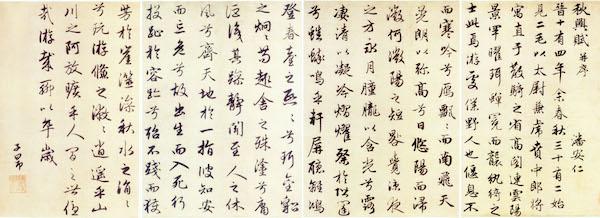 秋興賦 并序
潘安仁
晉十有四年余春秋三十有二始
見二毛以太尉兼虎賁中郎將
寓直于散騎之省高閣連雲陽
景罕曜珥蟬冕而襲紈綺之
士此焉游處僕野人也偃息不
而寒吟兮鴈飄飄而南飛天
晃朗以彌高兮日悠陽而浸
微何微陽之短晷覺涼夜
之方永月朣朧以含光兮露
凄清以凝冷熠燿粲於階闥
兮蟋蟀鳴乎軒屏聽離鴻
登春臺之熙熙兮珥金貂
之炯炯苟趣舍之殊塗兮庸
詎識其躁靜聞至人之休
風兮齊天地於一指彼知安
而忘危兮故出生而入死行
投趾於容跡兮殆不踐而獲
芳於崖澨澡秋水之涓涓
兮玩游鯈之潎潎逍遙乎山
川之阿放曠乎人間之世優
哉游哉聊以卒歲
子昂